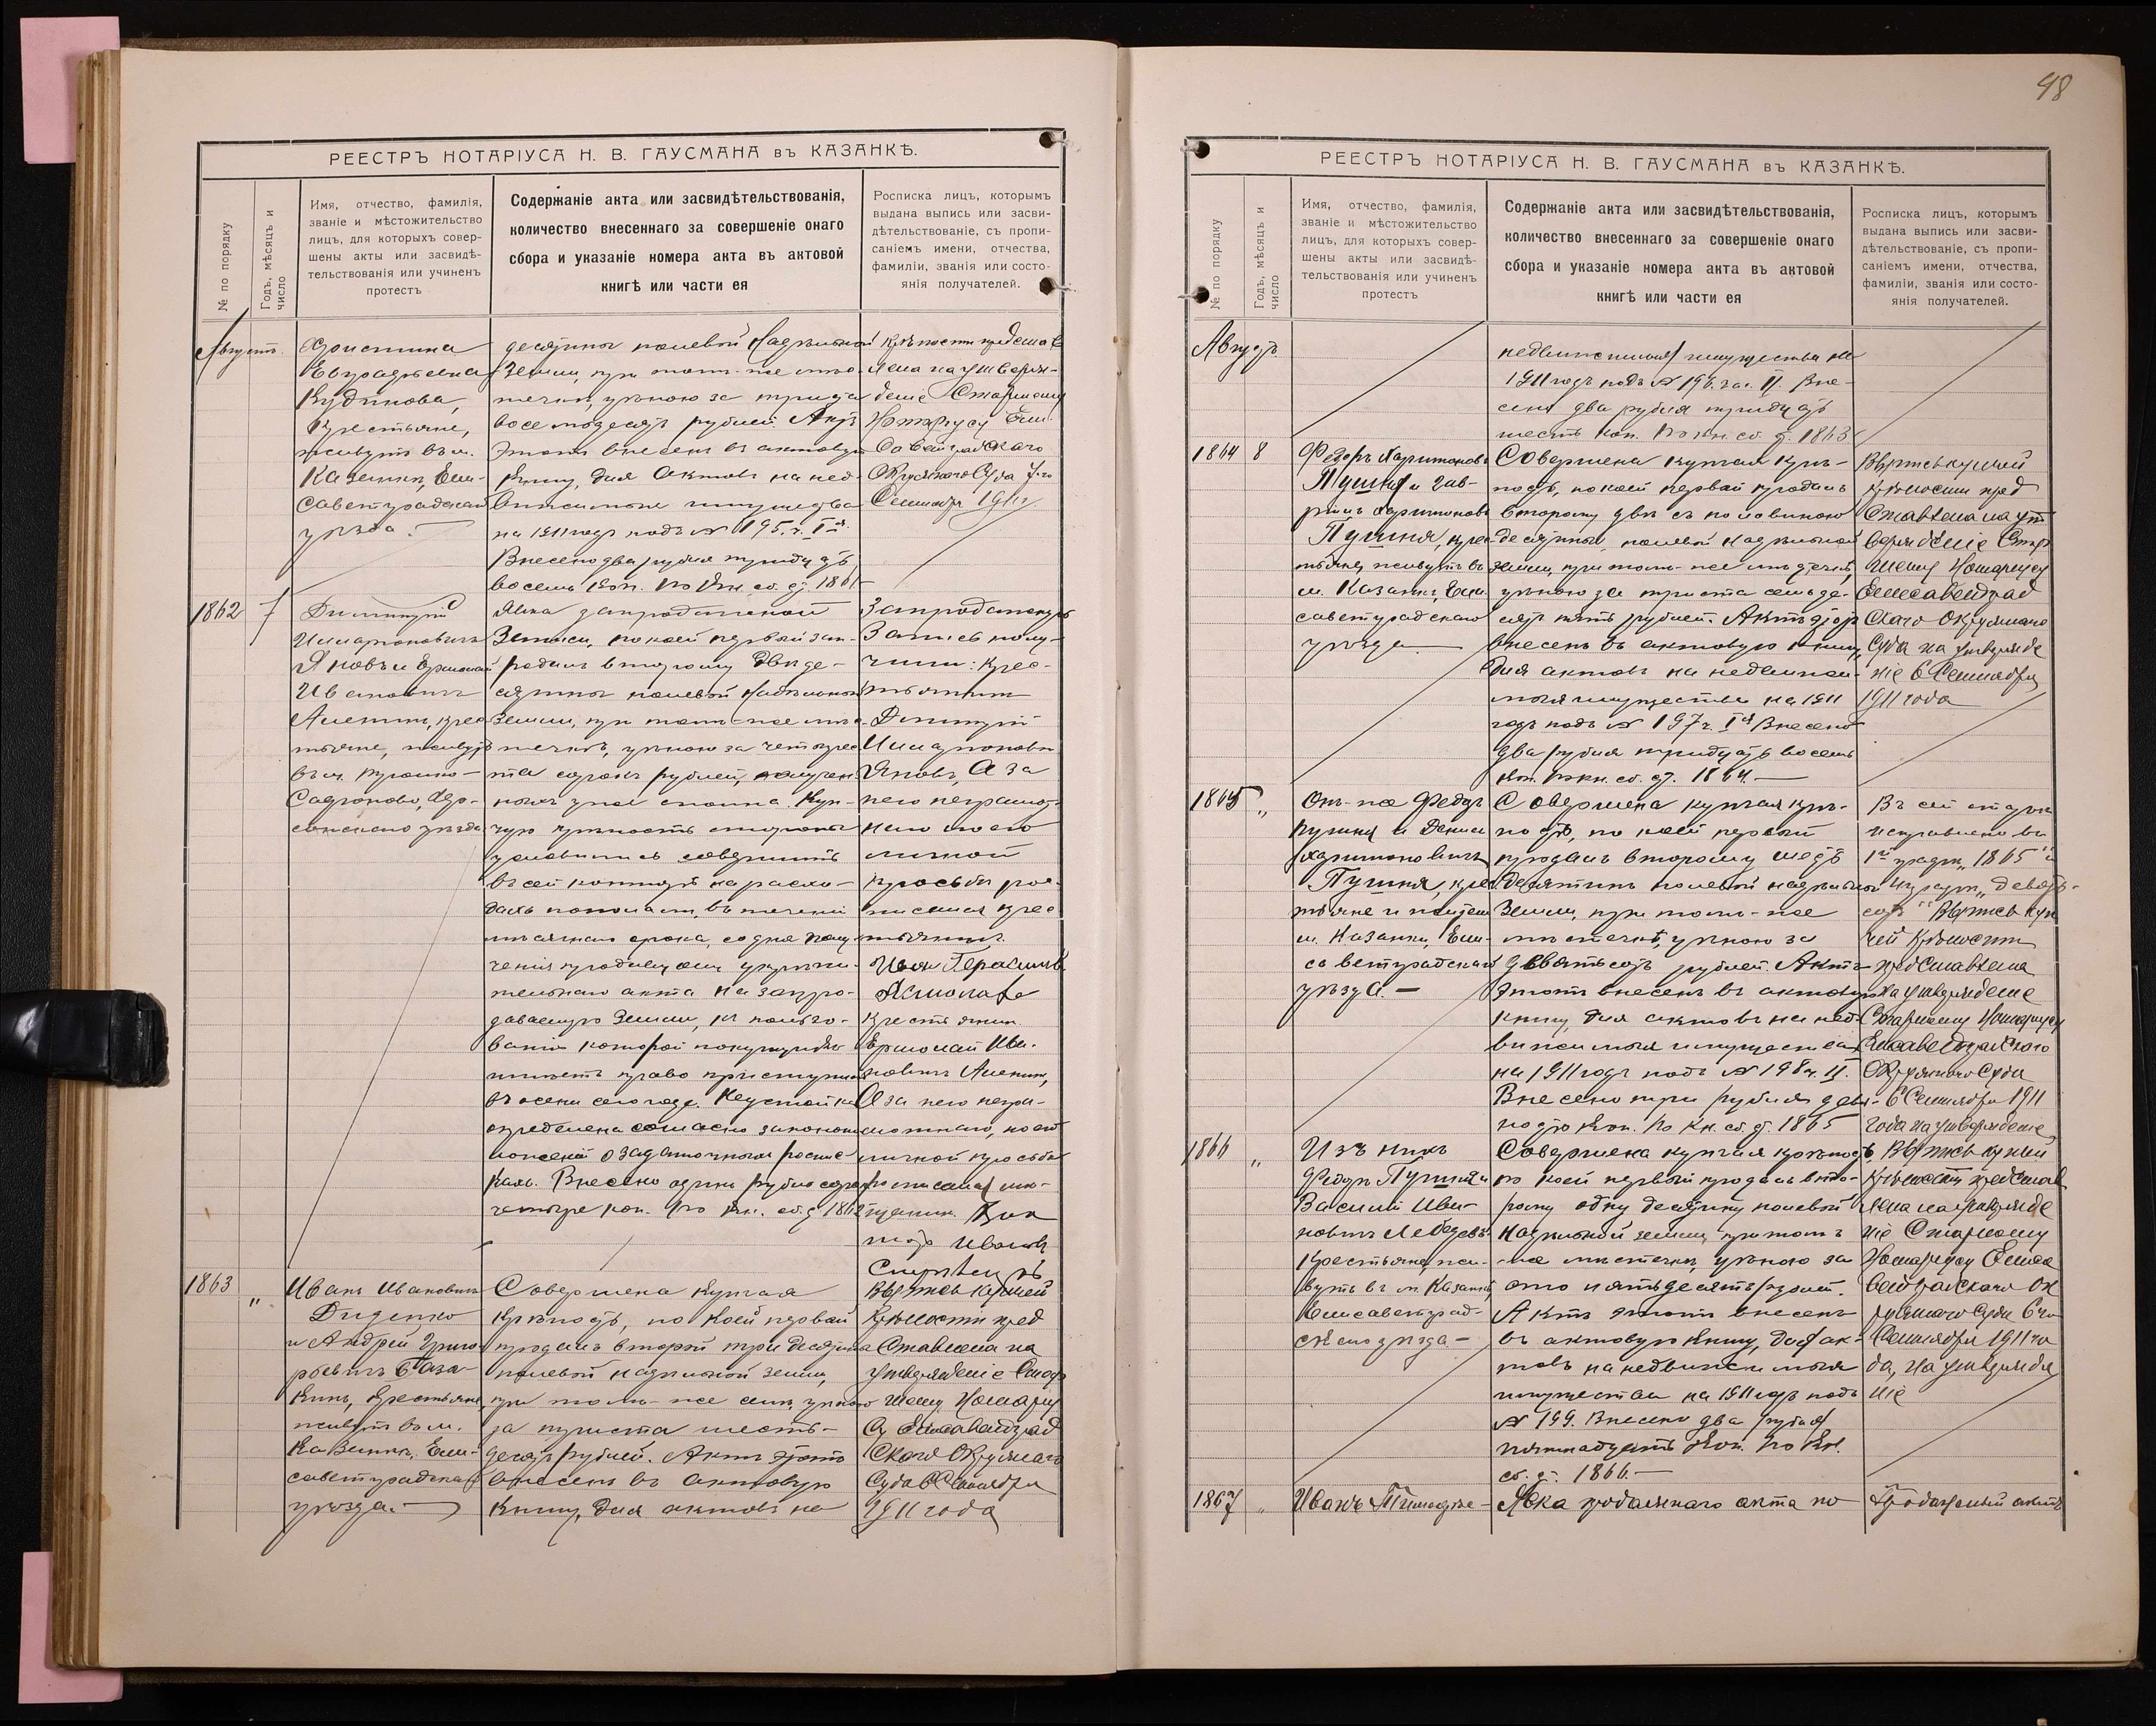 РЕЕСТРЪ НОТАРІУСА Н. В. ГАУСМАНА въ КАЗАНКѢ.
№ по порядку
Годъ, мѣсяцъ и
число
Имя, отчество, фамилія,
званіе и мѣстожительство
лицъ, для которыхъ совер-
шены акты или засвидѣ-
тельствованія или учиненъ
протестъ
Содержаніе акта или засвидѣтельствованія,
количество внесеннаго за совершеніе онаго
сбора и указаніе номера акта въ актовой
книгѣ или части ея
Росписка лицъ, которымъ
выдана выпись или засви-
дѣтельствованіе, съ пропи-
саніемъ имени, отчества,
фамиліи, званія или состо-
янія получателей.
Августъ.
Христина
Евграфѣевна
Кудинова,
крестьяне,
живутъ въ м.
Казанкѣ, Ели-
саветградскаго
уѣзда.
десятины полевой надѣльной
земли, при томъ-же мѣс-
течкѣ, цѣною за триста
восемьдесятъ рублей. Актъ
этотъ внесенъ въ актовую
книгу, для актовъ на нед-
вижимыя имущества
на 1911 годъ подъ № 195. ч. I я.
Внесено два рубля тридцать
восемь коп. по кн. сб. д. 1861
крѣпости представ
лена на утверж-
деніе Старшему
Нотаріусу Ели
саветградскаго
Окружнаго Суда 7го
Сентября 1911
1862
7
Димитрій
Иларіоновичъ
Яновъ и Ермолай
Ивановичъ
Аленинъ, крес-
тьяне, живутъ
въ м.
Сафроново, Хер-
сонскаго уѣзда
Явка запродажной
записи, по коей первый зап-
родалъ второму двѣ де-
сятины полевой надѣльной
земли, при томъ-же мѣс-
течкѣ, цѣною за четырес
та сорокъ рублей, получен
ныхъ уже сполна. Куп-
чую крѣпость стороны
условились совершить
въ сей конторѣ на расхо-
дахъ пополамъ, въ теченіи
мѣсячнаго срока, со дня полу-
ченія продавцомъ укрѣпи-
тельнаго акта на запро-
даваемую землю, къ пользо-
ванію которой покупщикъ
имѣетъ право приступить
въ осени сего года. Неустойка
опредѣлена согласно законопо
ложеній о задаточныхъ роспис
кахъ. Внесено одинъ рубль сорокъ
четыре коп. по кн. сб. д. 1862
Запродажную
запись полу-
чили: крес-
тьянинъ
Димитрій
Иларіоновъ
Яновъ, а за
него неграмот-
наго по его
личной
просьбѣ рос-
писался крес
тьянинъ
Яковъ Герасимовъ
крестьянинъ
Ермолай Ива-
новичъ Аленинъ,
а за него негра-
мотнаго, по его
личной просьбѣ
росписался мѣ-
щанинъ
Ивановъ
1863
„
Иванъ Ивановичъ
Диденко
и Андрей Григо-
рьевичъ
крестьяне
живутъ въ м.
Казанкѣ, Ели-
саветградскаго
уѣзда.
Совершена купчая
крѣпость, по коей первый
продалъ второй три десятины
полевой надѣльной земли,
при томъ-же сел. цѣною
за триста шесть-
десятъ рублей. Актъ этотъ
внесенъ въ актовую
книгу, для актовъ на
Выпись купчей
крѣпости пред
ставлена на
утвержденіе Стар
шему Нотаріу
су Елисаветград
скаго Окружнаго
Суда 6 Сентября
1911 года
48
РЕЕСТРЪ НОТАРІУСА Н. В. ГАУСМАНА въ КАЗАНКѢ.
№ по порядку
Годъ, мѣсяцъ и
число
Имя, отчество, фамилія,
званіе и мѣстожительство
лицъ, для которыхъ совер-
шены акты или засвидѣ-
тельствованія или учиненъ
протестъ
Содержаніе акта или засвидѣтельствованія,
количество внесеннаго за совершеніе онаго
сбора и указаніе номера акта въ актовой
книгѣ или части ея
Росписка лицъ, которымъ
выдана выпись или засви-
дѣтельствованіе, съ пропи-
саніемъ имени, отчества,
фамиліи, званія или состо-
янія получателей.
Августъ
недвижимыя имущества на
1911 годъ подъ № 196. час. II. Вне-
сено два рубля тридцать
шесть коп. По кн. сб. д. 1863
1864
8
Федоръ Харитоновъ
Пушня и Гав-
ріилъ Харитоновъ
Пушня, крес-
тьяне, живутъ въ
м. Казанкѣ, Ели-
саветградскаго
уѣзда
Совершена купчая крѣ-
пость, по коей первый продалъ
второму двѣ съ половиною
десятины, полевой надѣльной
земли, при томъ-же мѣстечкѣ,
цѣною за триста семьде-
сятъ пять рублей. Актъ этотъ
внесенъ въ актовую книгу,
для актовъ на недвижи-
мыя имущества на 1911
годъ подъ № 197 ч. I я Внесено
два рубля тридцать восемь
коп. По кн. сб. д. 1864.
Выпись купчей
крѣпости пред
ставлена на ут
вержденіе Стар
шему Нотаріусу
Елисаветград
скаго Окружнаго
Суда на утвержде
ніе 6 Сентября
1911 года
1865
„
Онъ-же Федоръ
Пушня и Денисъ
Харитоновичъ
Пушня, крес-
тьяне и жители
м. Казанки, Ели-
саветградскаго
уѣзда.
Совершена купчая крѣ-
пость, по коей первый
продалъ второму шесть
десятинъ полевой надѣльной
земли, при томъ-же
мѣстечкѣ, цѣною за
девятьсотъ рублей. Актъ
этотъ внесенъ въ актовую
книгу, для актовъ на нед-
вижимыя имущества
на 1911 годъ подъ № 198 ч. II.
Внесено три рубля девя-
носто коп. По кн. сб. д. 1865
Въ сей статьѣ
исправлено въ
1й графѣ „1865“ и
„девять-
сотъ“ Выпись куп
чей крѣпости
представлена
на утвержденіе
Старшему Нотаріусу
Елисаветградскаго
Окружнаго Суда
6 Сентября 1911
года на утвержденіе
1866
„
Изъ нихъ
Федоръ Пушня и
Василій Ива-
новичъ Лебедевъ
крестьяне, жи-
вутъ въ м. Казанкѣ,
Елисаветград-
скаго уѣзда
Совершена купчая крѣпость,
по коей первый продалъ вто-
рому одну десятину полевой
надѣльной земли, при томъ
же мѣстечкѣ, цѣною за
сто пятьдесятъ рублей.
Актъ этотъ внесенъ
въ актовую книгу, для ак-
товъ на недвижимыя
имущества на 1911 годъ подъ
№ 199. Внесено два рубля
пятнадцать коп. По кн.
сб. д. 1866.
Выпись купчей
крѣпости представ
лена на утвержде
ніе Старшему
Нотаріусу Елиса
ветградскаго Ок
ружнаго Суда 6го
Сентября 1911 го
да, на утвержде
ніе
1867
„
Иванъ
Явка продажнаго акта по
Продажный актъ